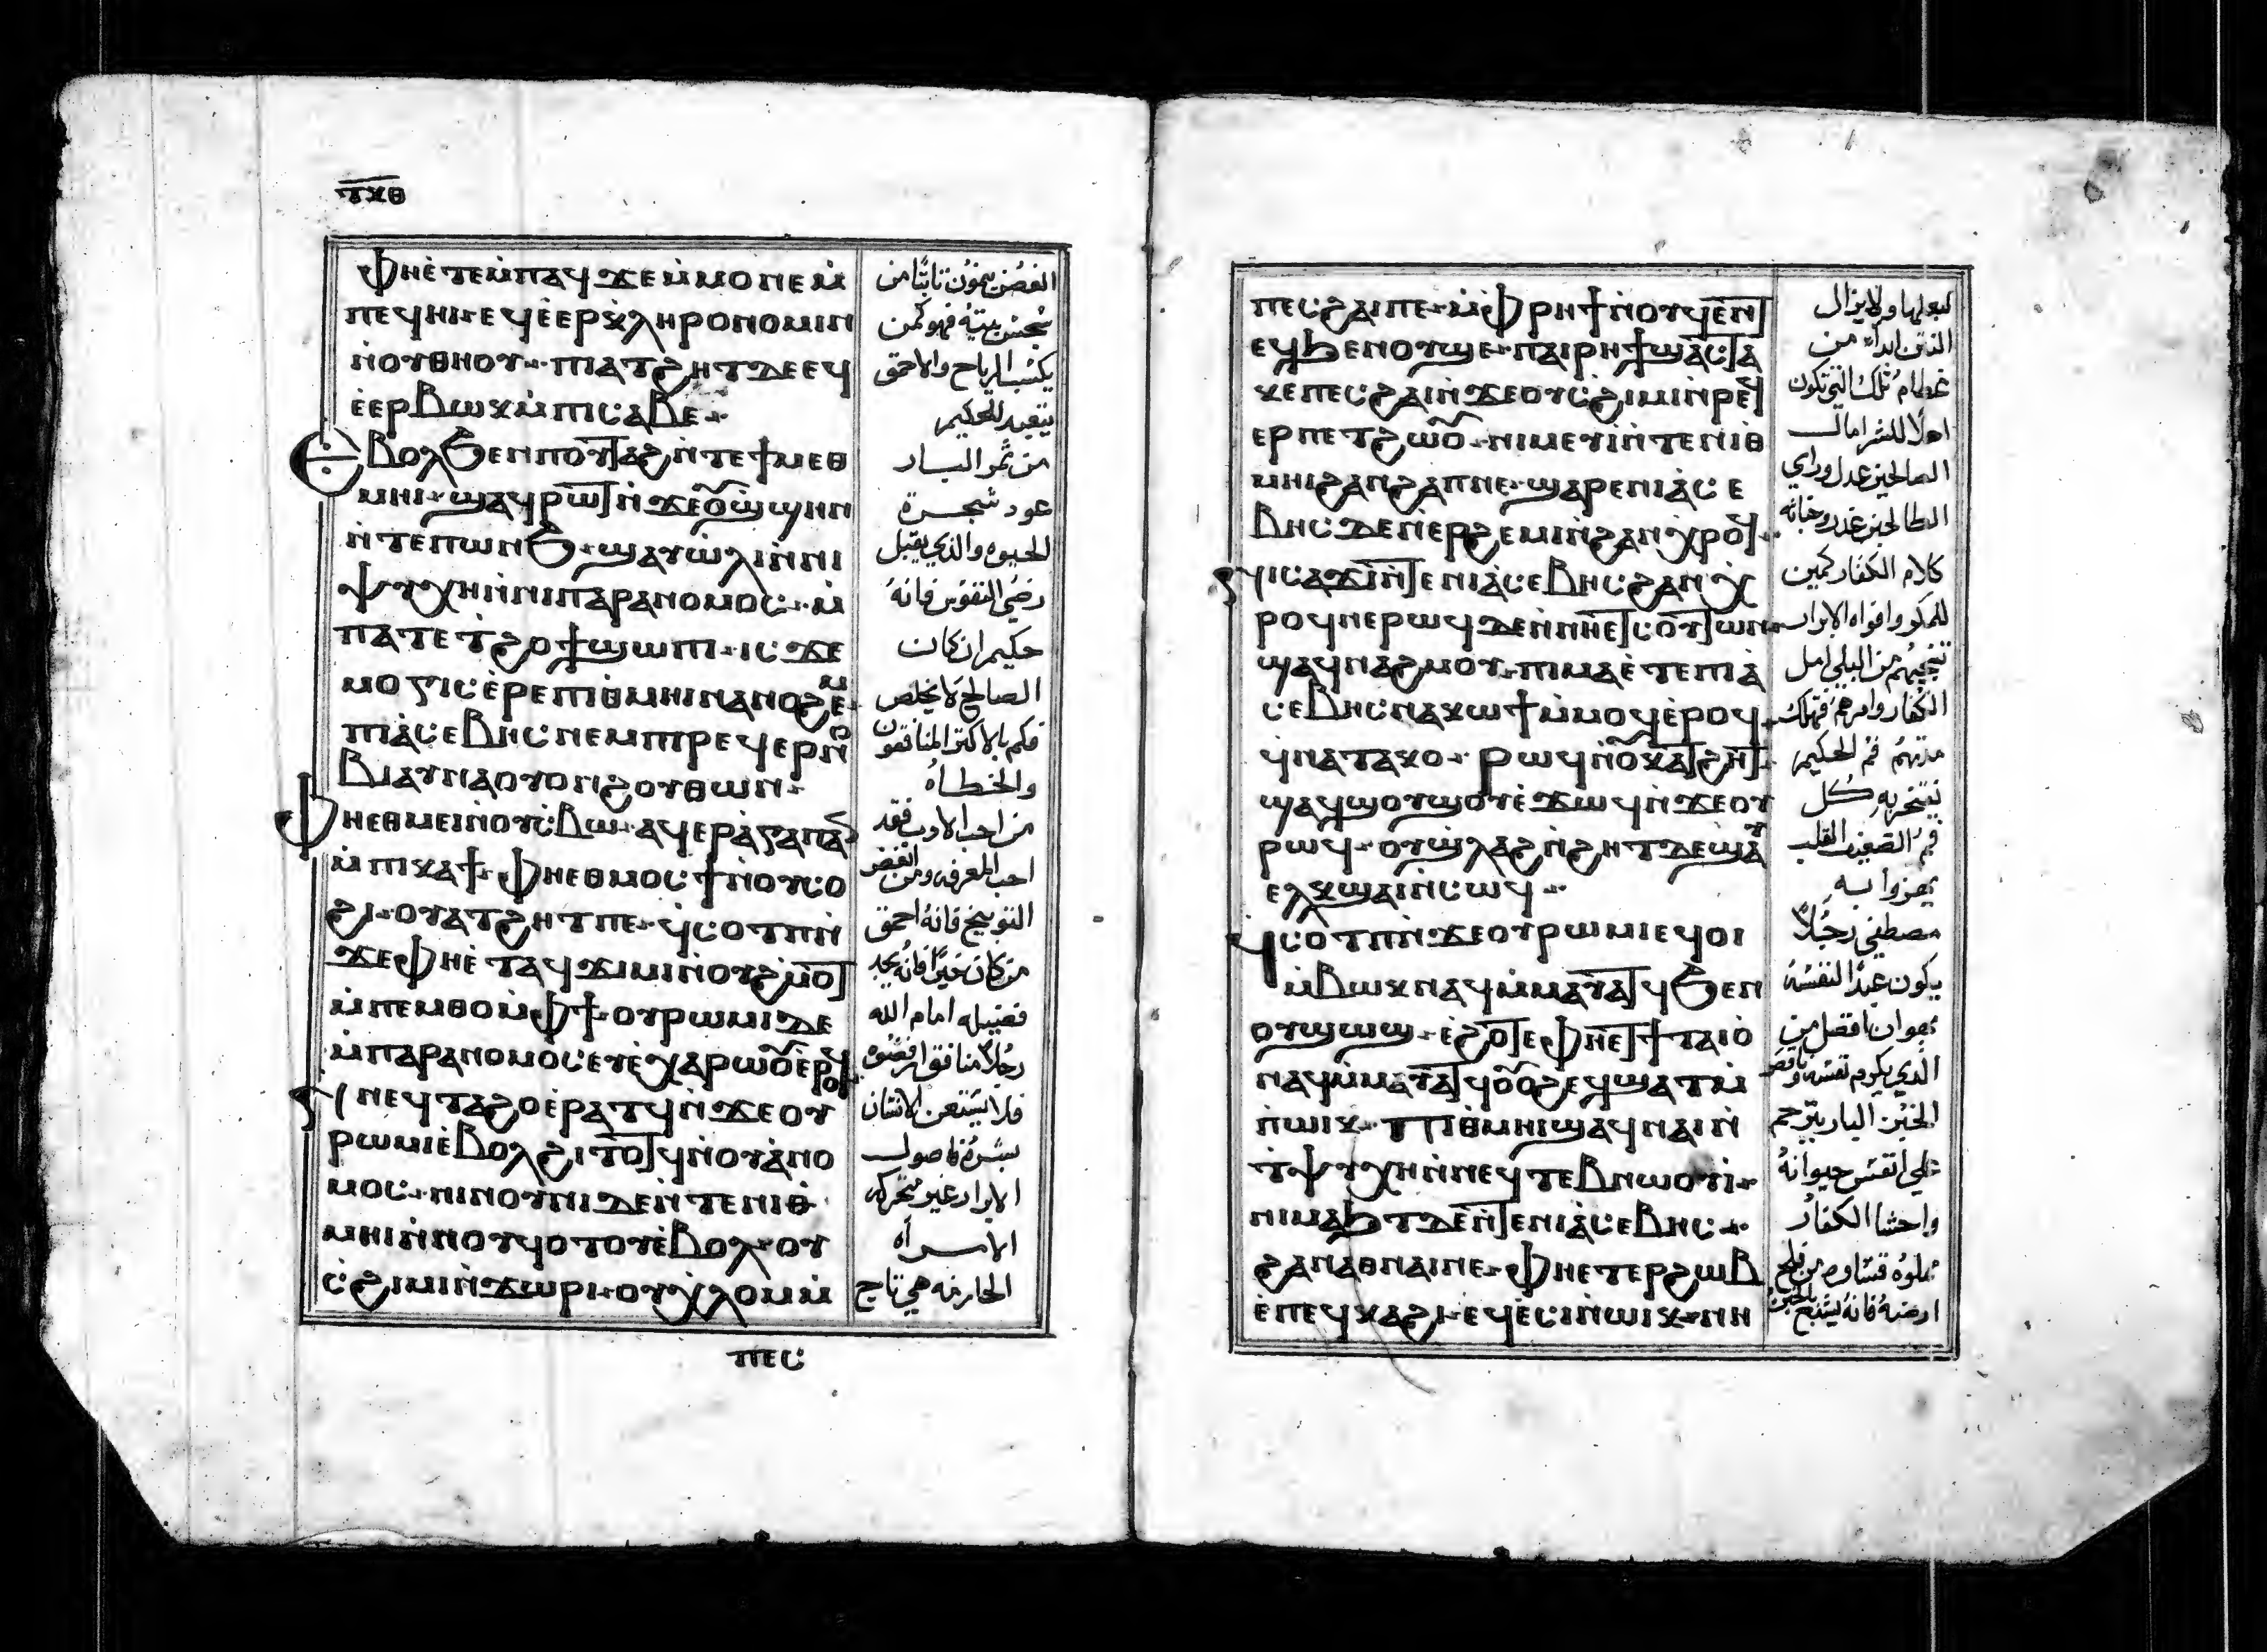 ⲧⲝⲑ
ⲫⲏⲉ̀ⲧⲉⲙ̀ⲡⲁϥϫⲉⲙ̀ⲙⲟⲛⲉⲙ̀
ⲡⲉϥⲏⲓ· ⲉϥⲉ̀ⲉⲣⲕ̀ⲗⲏⲣⲟⲛⲟⲙⲓⲛ
ⲛ̀ⲟⲩⲑⲏⲟⲩ· ⲡⲓⲁⲧϩⲏⲧ ⲇⲉ ⲉϥ
ⲉ̀ⲉⲣⲃⲱⲕ ⲙ̀ⲡⲓⲥⲁⲃⲉ·
ⲉⲃⲟⲗϧⲉⲛⲡⲟⲩⲧⲁϩ ⲛ̀ⲧⲉϯⲙⲉⲑ
ⲙⲏⲓ· ϣⲁϥⲣⲱⲧ ⲛ̀ϫⲉⲟⲩ̀ϣϣⲏⲛ
ⲛ̀ⲧⲉⲡⲱⲛϧ· ϣⲁⲩⲱ̀ⲗⲓⲛ̀ⲛⲓ
ⲯⲩⲭⲏⲛ̀ⲛⲓⲡⲁⲣⲁⲛⲟⲙⲟⲥ· ⲙ̀
ⲡⲁⲧⲉⲧϩⲟϯϣⲱⲡⲓ· ⲓⲥϫⲉ
ⲙⲟⲅⲓⲥ ⲉ̀ⲣⲉⲡⲓⲑ̀ⲙⲏⲓⲛⲁⲛⲟϩⲉⲙ
ⲡⲓⲁ̀ⲥⲉⲃⲏⲥ ⲛⲉⲙⲡⲓⲣⲉϥⲉⲣⲛⲟ
ⲃⲓⲁⲩⲛⲁⲟⲩⲟⲛϩⲟⲩⲑⲱⲛ·
ⲫⲏⲉⲑⲙⲉⲓⲛ̀ⲟⲩⲥ̀ⲃⲱ· ⲁϥⲉⲣⲁ̀ⲅⲁⲡⲁⲛ
ⲙ̀ⲡⲓⲕⲁϯ· ⲫⲏⲉⲑⲙⲟⲥϯⲛ̀ⲟⲩⲥⲟ
ϩⲓ· ⲟⲩⲁⲧϩⲏⲧⲡⲉ· ϥ̀ⲥⲟⲧⲡⲛ̀
ϫⲉⲫⲏⲉ̀ⲧⲁϥϫⲓⲙⲓⲛ̀ⲟⲩϩ̀ⲙⲟⲧ
ⲙ̀ⲡⲉⲙⲑⲟⲙ̀ⲫϯ· ⲟⲩⲣⲱⲙⲓ ⲇⲉ
ⲙ̀ⲡⲁⲣⲁⲛⲟⲙⲟⲥ ⲉⲩⲉ̀ⲭⲁⲣⲱⲟⲩ ⲉ̀ⲣⲟϥ
ϥⲛⲉϥⲧⲁϩⲟ ⲉ̀ⲣⲁⲧϥ ⲛ̀ϫⲉⲟⲩ
ⲣⲱⲙⲓ ⲉ̀ⲃⲟⲗϩⲓⲧⲟⲧϥ ⲛ̀ⲟⲩⲁ̀ⲛⲟ
ⲙⲟⲥ· ⲛⲓⲛⲟⲩⲛⲓ ⲇⲉ ⲛ̀ⲧⲉⲛⲓⲑ̀
ⲙⲏⲓ ⲛ̀ⲛⲟⲩϥⲟⲧⲟⲩ ⲉ̀ⲃⲟⲗ· ⲟⲩ
ⲥ̀ϩⲓⲙⲓ ⲛ̀ϫⲱⲣⲓ· ⲟⲩⲭ̀ⲗⲟⲙ ⲙ̀
ⲡⲉⲥ
الغصن يمون نابتا من
يحسن بيته فهو كمن
يكتسب الرياح والاحمق
يتعبد للحكيم
من ثمر البار
عود شجرة
الحيوه والذي يقبل
رضي النفوس فانه
حكيم ان كان
الصالح لا يخلص
فكم بالاكثر المنافقون
والخطاه
من احب الادب فقد
احب المعرفه ومن ابغض
التوبيخ فانه احمق
من كان خيرا فانه يجد
فضيله امام الله
رجلا منافقا
فلا يستعن الانسان
بشره فاصول
الابرار غير متحركه
الامراه
الحازمه هي تاج
ⲡⲉⲥϩⲁⲓⲡⲉ· ⲙ̀ⲫⲣⲏϯⲛ̀ⲟⲩϥⲉⲛⲧ
ⲉϥϧⲉⲛⲟⲩϣⲉ· ⲡⲁⲓⲣⲏϯϣⲁⲥⲧⲁ
ⲕⲉⲡⲉⲥϩⲁⲓ ⲛ̀ϫⲉⲟⲩⲥ̀ϩⲓⲙⲓ ⲛ̀ⲣⲉϥ
ⲉⲣⲡⲉⲧϩⲱⲟⲩ· ⲛⲓⲙⲉⲩⲓ ⲛ̀ⲧⲉⲛⲓⲑ
ⲙⲏⲓ ϩⲁⲛϩⲁⲡⲛⲉ· ϣⲁⲣⲉⲛⲓⲁ̀ⲥⲉ
ⲃⲏⲥ ⲇⲉ ⲛ̀ⲉⲣϩⲉⲙⲓ ⲛ̀ϩⲁⲛⲭ̀ⲣⲟϥ·
ⲛⲓⲥⲁϫⲓ ⲛ̀ⲧⲉⲛⲓⲁ̀ⲥⲉⲃⲏⲥ ϩⲁⲛⲭ̀
ⲣⲟϥⲛⲉ ⲣⲱϥ ⲇⲉ ⲛ̀ⲛⲏⲉⲧⲥⲟⲩⲧⲱⲛ
ϣⲁϥⲛⲁϩⲙⲟⲩ· ⲡⲓⲙⲁ ⲉ̀ⲧⲉⲡⲓⲁ̀
ⲥⲉⲃⲏⲥ ⲛⲁⲕⲱϯ ⲙ̀ⲙⲟϥ ⲉ̀ⲣⲟϥ·
ϥⲛⲁⲧⲁⲕⲟ· ⲣⲱϥ ⲛ̀ⲟⲩⲕⲁⲧϩⲏⲧ
ϣⲁϥϣⲟⲩϣⲟⲩ ⲉ̀ϫⲱϥ ⲛ̀ϫⲉⲟⲩ
ⲣⲱϥ· ⲟⲩϣ̀ⲗⲁϩ ⲛ̀ϩⲏⲧ ⲇⲉ ϣⲁⲩ
ⲉⲗⲕϣⲁⲓ ⲛ̀ⲥⲱϥ·
ϥ̀ⲥⲟⲧⲡ ⲛ̀ϫⲉⲟⲩⲣⲱⲙⲓ ⲉϥⲟⲓ
ⲙ̀ⲃⲱⲕ ⲛⲁϥ ⲙ̀ⲙⲁⲩⲁⲧϥ ϧⲉⲛ
ⲟⲩϣⲱϣ· ⲉ̀ϩⲟⲧⲉ ⲫⲏⲉⲧϯⲧⲁⲓⲟ̀
ⲛⲁϥ ⲙ̀ⲙⲁⲩⲁⲧϥ ⲟⲩⲟϩ ⲉϥϣⲁⲧ ⲙ̀
ⲛ̀ⲱⲓⲕ· ⲡⲓⲑ̀ⲙⲏⲓ ϣⲁϥⲛⲁⲓ ⲛ̀
ϯⲯⲩⲭⲏ ⲛ̀ⲛⲉϥⲧⲉⲃⲛⲱⲟⲩⲓ·
ⲛⲓⲙⲁϧⲧ ⲇⲉ ⲛ̀ⲧⲉⲛⲓⲁ̀ⲥⲉⲃⲏⲥ·
ϩⲁⲛⲁⲑⲛⲁⲓⲛⲉ· ⲫⲏⲉⲧⲉⲣϩⲱⲃ
ⲉ̀ⲡⲉϥⲕⲁϩⲓ· ⲉϥⲉ̀ⲥⲓ ⲛ̀ⲱⲓⲕ· ⲛⲏ
لبعلها ولا يزال
امثلا للشر امال
الصالحين عدل وراي
كلام الكفار كمين
للمكر وافواه الابرار
تنجيهم من البلي امل
مدنهم فم الحكيم
يفتخر به كل
فم الضعيف القلب
يهزوا به
مصطفي رجلا
يكون عبدا لنفسه
بهوان افضل من
الذي يكرم نفسه وناقص
الخبز البار يترحم
علي انفس حيوانه
واحشا الكفار
مملوه قساوه من فلح
ارضه فانه يشبع بالخبز